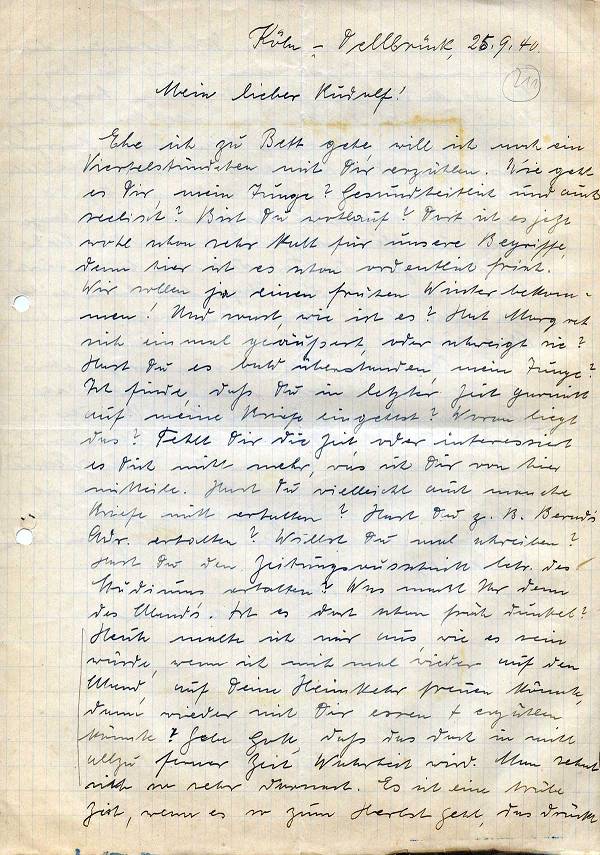 Köln - Dellbrück, 25.9.40
211
Mein lieber Rudolf!
Ehe ich zu Bett gehe, will ich noch ein
Viertelstündchen mit Dir erzählen. Wie geht
es Dir, mein Junge? Gesundheitlich und auch
seelisch? Bist Du wohlauf? Dort ist es jetzt
wohl schon sehr kalt für unsere Begriffe,
denn hier ist es schon ordentlich frisch.
Wir sollen ja einen frühen Winter bekom-
men! Und sonst, wie ist es? Hat Margret
sich einmal geäussert, oder schweigt sie?
Hast Du es bald überstanden, mein Junge?
Ich finde, daß Du in letzter Zeit garnicht
auf meine Briefe eingehst? Woran liegt
das? Fehlt Dir die Zeit, oder interessiert
es Dich nicht mehr, was ich Dir von hier
mitteile. Hast Du vielleicht auch manche
Briefe nicht erhalten? Hast Du z. B. Bernds
Adr. erhalten? Willst Du mal schreiben?
Hast Du den Zeitungsausschnitt betr. des
Studiums erhalten? Was macht Ihr denn
des Abends. Ist es dort schon früh dunkel?
Heute malte ich mir aus, wie es sein
würde, wenn ich mich mal wieder auf den
Abend, auf Deine Heimkehr freuen könnte,
dann wieder mit Dir essen + erzählen
könnte? Gebe Gott, daß das doch in nicht
allzu ferner Zeit, Wahrheit wird. Man sehnt
sich so sehr danach. Es ist eine trübe
Zeit, wenn es so zum Herbst geht, das drückt